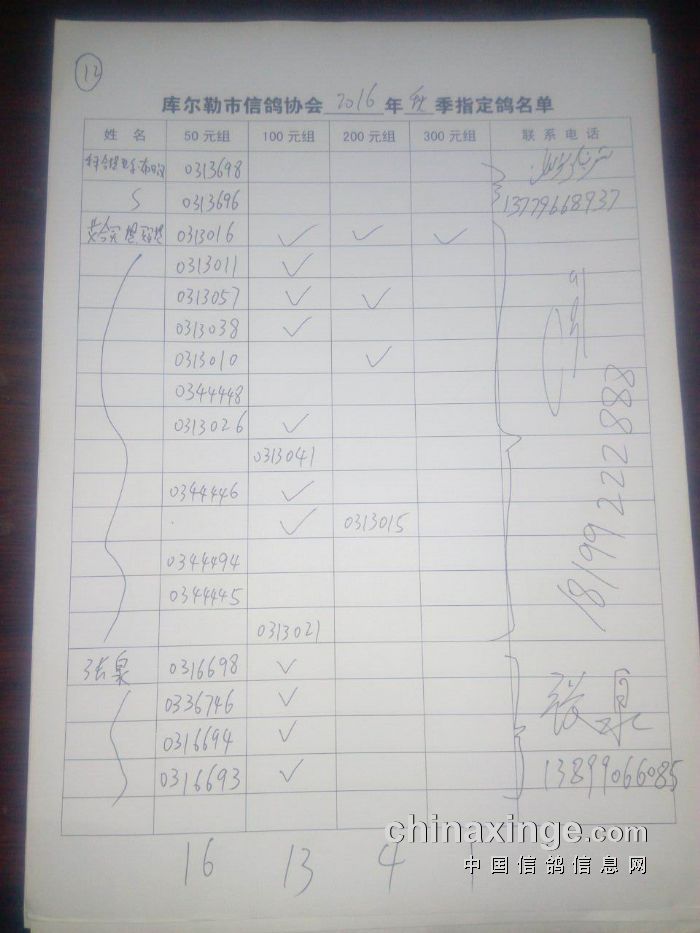 12
库尔勒市信鸽协会 2016 年 秋 季指定鸽名单
姓 名 50元组 100元组 200元组 300元组 联系电话
0313698
0313696 13779668937
0313016 ✓ ✓ ✓
0313011 ✓
0313057 ✓ ✓
0313038 ✓
0313010 ✓
0344448
0313026 ✓
0313041
0344446 ✓
✓ 0313015
0344494
0344445
0313021
18199222888
张泉 0316698 ✓
0336746 ✓ 张泉
0316694 ✓
0316693 ✓ 13899066085
16 13 4 1
chinaxinge.com
中国信鸽信息网